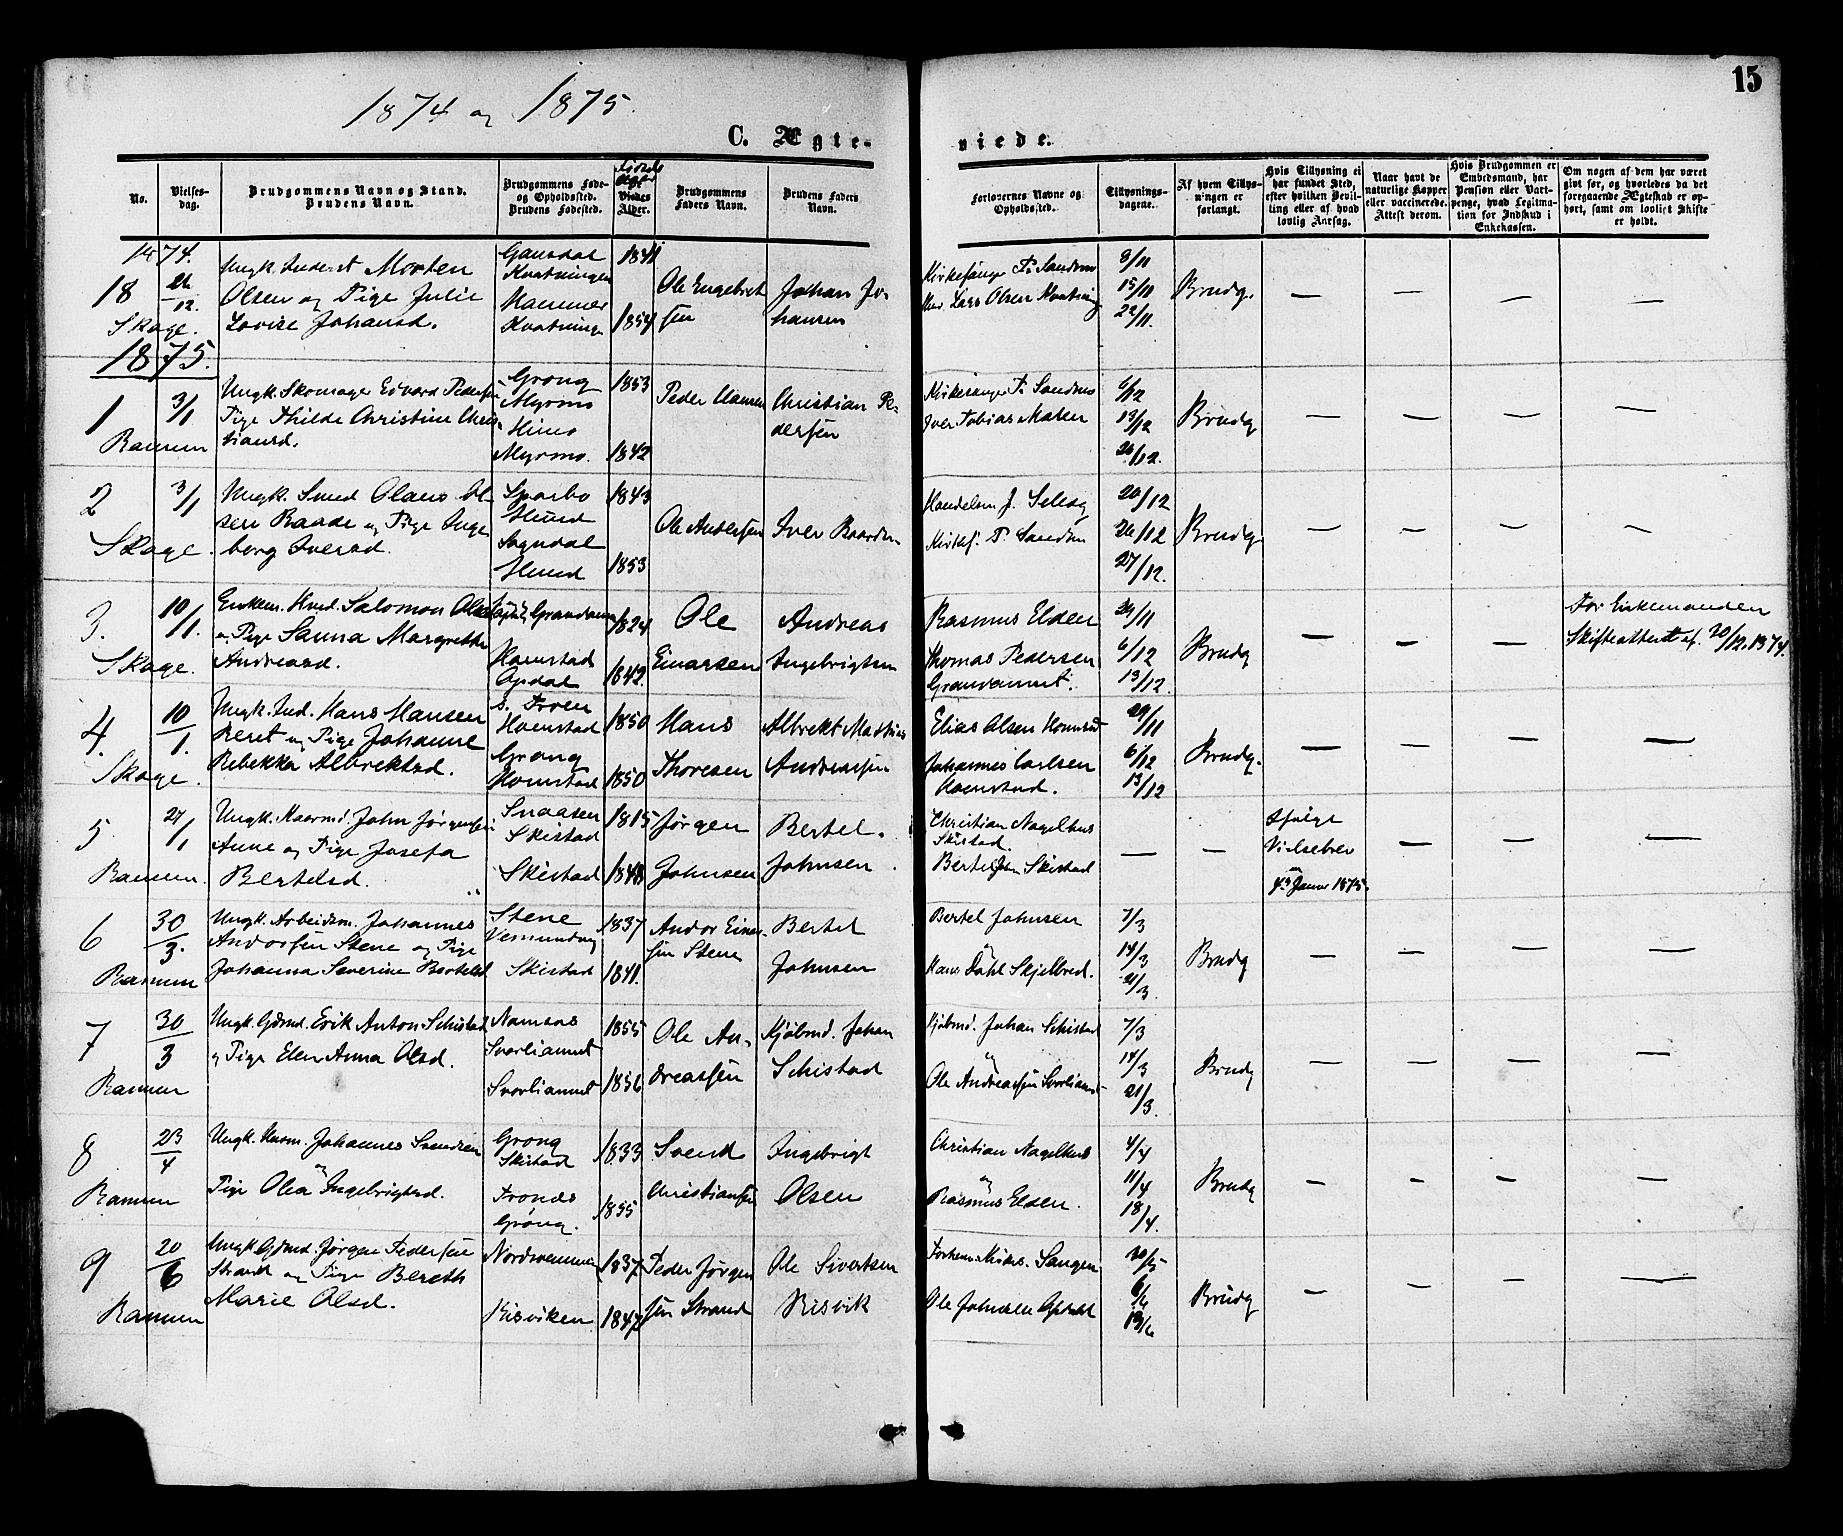 15
1874 og 1875.
C. Ægte-
viede.
No.
Vielses-
dag.
Brudgommens Navn og Stand.
Brudens Navn.
Brudgommens Føde-
og Opholdssted.
Brudens Fødested.
Fødsels
Alder.
Brudgommens
Faders Navn.
Brudens Faders
Navn.
Forlovernes Navne og
Opholdssted.
Tillysnings-
dagene.
Af hvem Tillys-
ningen er
forlangt.
Hvis Tillysning ei
har fundet Sted,
efter hvilken Bevil-
ling eller af hvad
lovlig Aarsag.
Naar havt de
naturlige Kopper
eller vaccinerede.
Attest derom.
Hvis Brudgommen er
Embedsmand, har
Pension eller Vart-
penge, hvad Legitima-
tion for Indskud i
Enkekassen.
Om nogen af dem har været
givt før, og hvorledes da det
foregaaende Ægteskab er op-
hørt, samt om lovligt Skifte
er holdt.
1874.
18
Skage.
Ungk. Inderst Morten
Olsen og Pige Julie
Lovise Johansd.
Gansdal
Kvatningen
Hammer
Kvatninge
1841
1854
Ole Engebret
sen
Johan Jo-
hansen
Kirkesanger P. Sandnes
Lars Olsen Kvatning
8/11
15/11
22/11.
Brudg.
— — — —
1875.
1 3/1
Ranem
Ungk. Skomager Edvard Pedersen
Pige Thilde Christine Chris-
tiansd.
Grong
Myrmo
Himo
Myrmo.
1853
1842
Peder Clausen
Christian Pe-
dersen
Kirkesanger P. Sandnes
Iver Tobias Moster
6/12
13/12
26/12.
Brudg
— — — —
2 3/1
Skage.
Ungk. Smed Olaus Ol
sen Raade og Pige Inge
borg Iversd.
Sparbo
Hund
Sogndal
Hund
1843
1853
Ole Andersen
Iver Baardsen
Handelsm J. Selæg
Kirkes. P. Sandnes
20/12
26/12
27/12.
Brudg.
— — — —
3. 10/1.
Skage.
Enkem. Husm. Salomon Olsen
og Pige Sanna Margrethe
Andreasd.
Grandamn
Homstad
Opdal
1824
1842.
Ole
Einarsen
Andreas
Ingebrigtsen
Rasmus Elden
Thomas Pedersen
Granamnet.
29/11
6/12
13/12.
Brudg
— — —
For Enkemanden
Skifteattest af 20/12.1874.
4. 10/1.
Skage.
Ungk. Ind. Hans Hansen
Leret og Pige Johanne
Rebekka Albrektsd.
S. Fron
Homstad
Grong
Homstad
1850
1850
Hans
Thoresen
Albrekt Mathias
Andreassen
Elias Olsen Homstad
Johannes Carlsen
Homstad.
29/11
6/12
13/12
Brudg.
— — — —
5 27/1
Ranem.
Ungk. Kaarmd. John Jørgensen
Aune og Pige Josefa
Bertelsd.
Snaasen
Skistad
Skistad
1815
1848
Jørgen
Johnsen
Bertel.
Johnsen.
Christian Nagelhus
Skistad.
Bertel Johns. Skistad
— —
Ifølge
Vielsebrev
4de Januar 1875.
— — —
6 30/3.
Ranem
Ungk. Arbeidsm. Johannes
Andorsen Stene og Pige
Johanna Severine Bertelsd
Stene
Vemundvig
Skistad
1837
1841.
Andor Einer-
sen Stene
Bertel
Johnsen
Bertel Johnsen
Hans Dahl Skjelbred.
7/3
14/3
21/3.
Brudg
— — — —
7 30/3
Ranem
Ungk. Gdmd. Erik Anton Schistad
og Pige Elen Anna Olsd.
Namsos
Svorliamnet
Svorliamnet
1855
1856
Ole An-
dreassen
Kjøbmd. Johan
Schistad
Kjøbmd. Johan Schistad
og
Ole Andreassen Svorliamnet
7/3
14/3
21/3.
Brudg
— — — —
8 23/4
Ranem
Ungk. Husm. Johannes Svendsen
og
Pige Olea Ingebrigtsd.
Grong
Skistad
Trones
Grong.
1833
1855
Svend
Christiansen
Ingebrigt
Olsen
Christian Nagelhus
og
Rasmus Elden.
4/4
11/4
18/4.
Brudg
— — — —
9 20/6
Ranem
Ungk. Gdmd. Jørgen Pedersen
Strand og Pige Bereth
Marie Olsd.
Risviken
1837
1847
Peder Jørgen
sen Strand
Ole Sivertsen
Risvik
Ole Johnsen Opdal
30/5
6/6
13/6
Brudg
— — — —